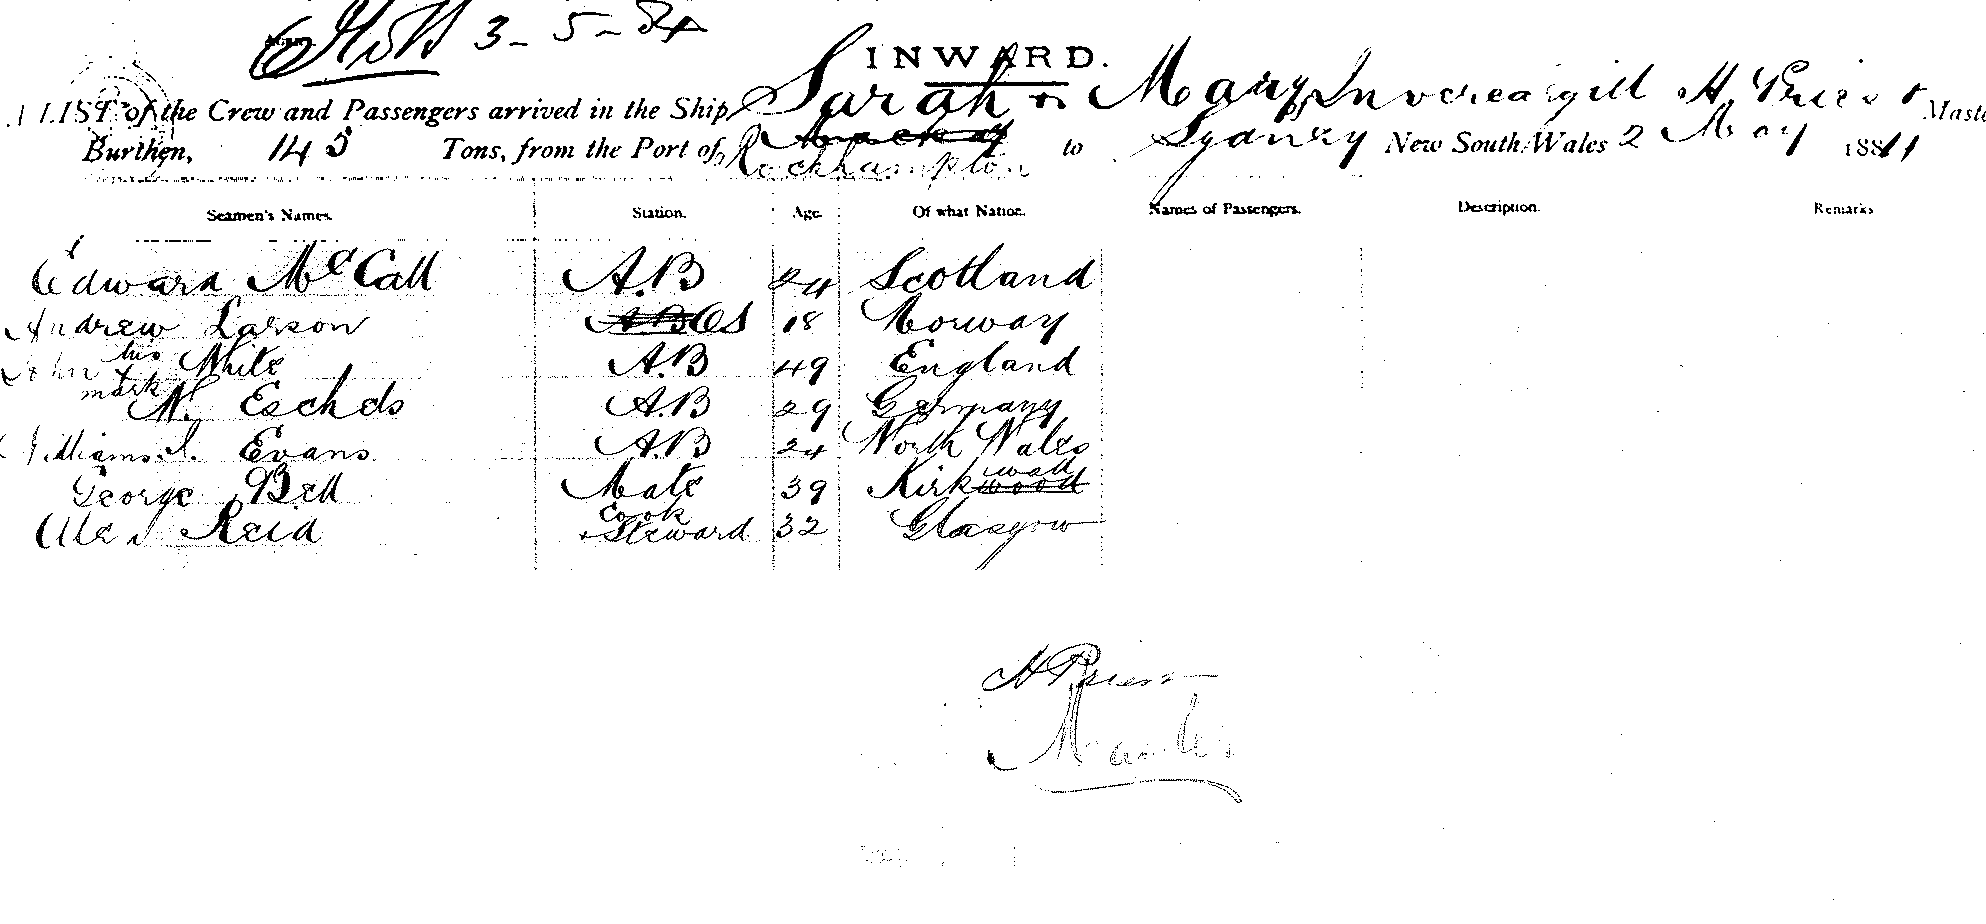 3-5-84
INWARD.
A LIST of the Crew and Passengers arrived in the Ship, Sarah & Mary of Invercargill H Priest Master
Burthen, 145 Tons, from the Port of, Mackay Rockhampton to Sydney New South Wales 2 May 1884
Seamen's Names. Station. Age. Of what Nation. Names of Passengers. Description. Remarks
Edward McCall A.B 24 Scotland
Andrew Larson AB OS 18 Norway
John his x mark White A.B 49 England
N. Eschels A.B 29 Germany
William J. Evans A.B 24 North Wales
George Bell Mate 39 Kirkwood wall
Alex Reid Cook + Steward 32 Glasgow
H Priest
Master